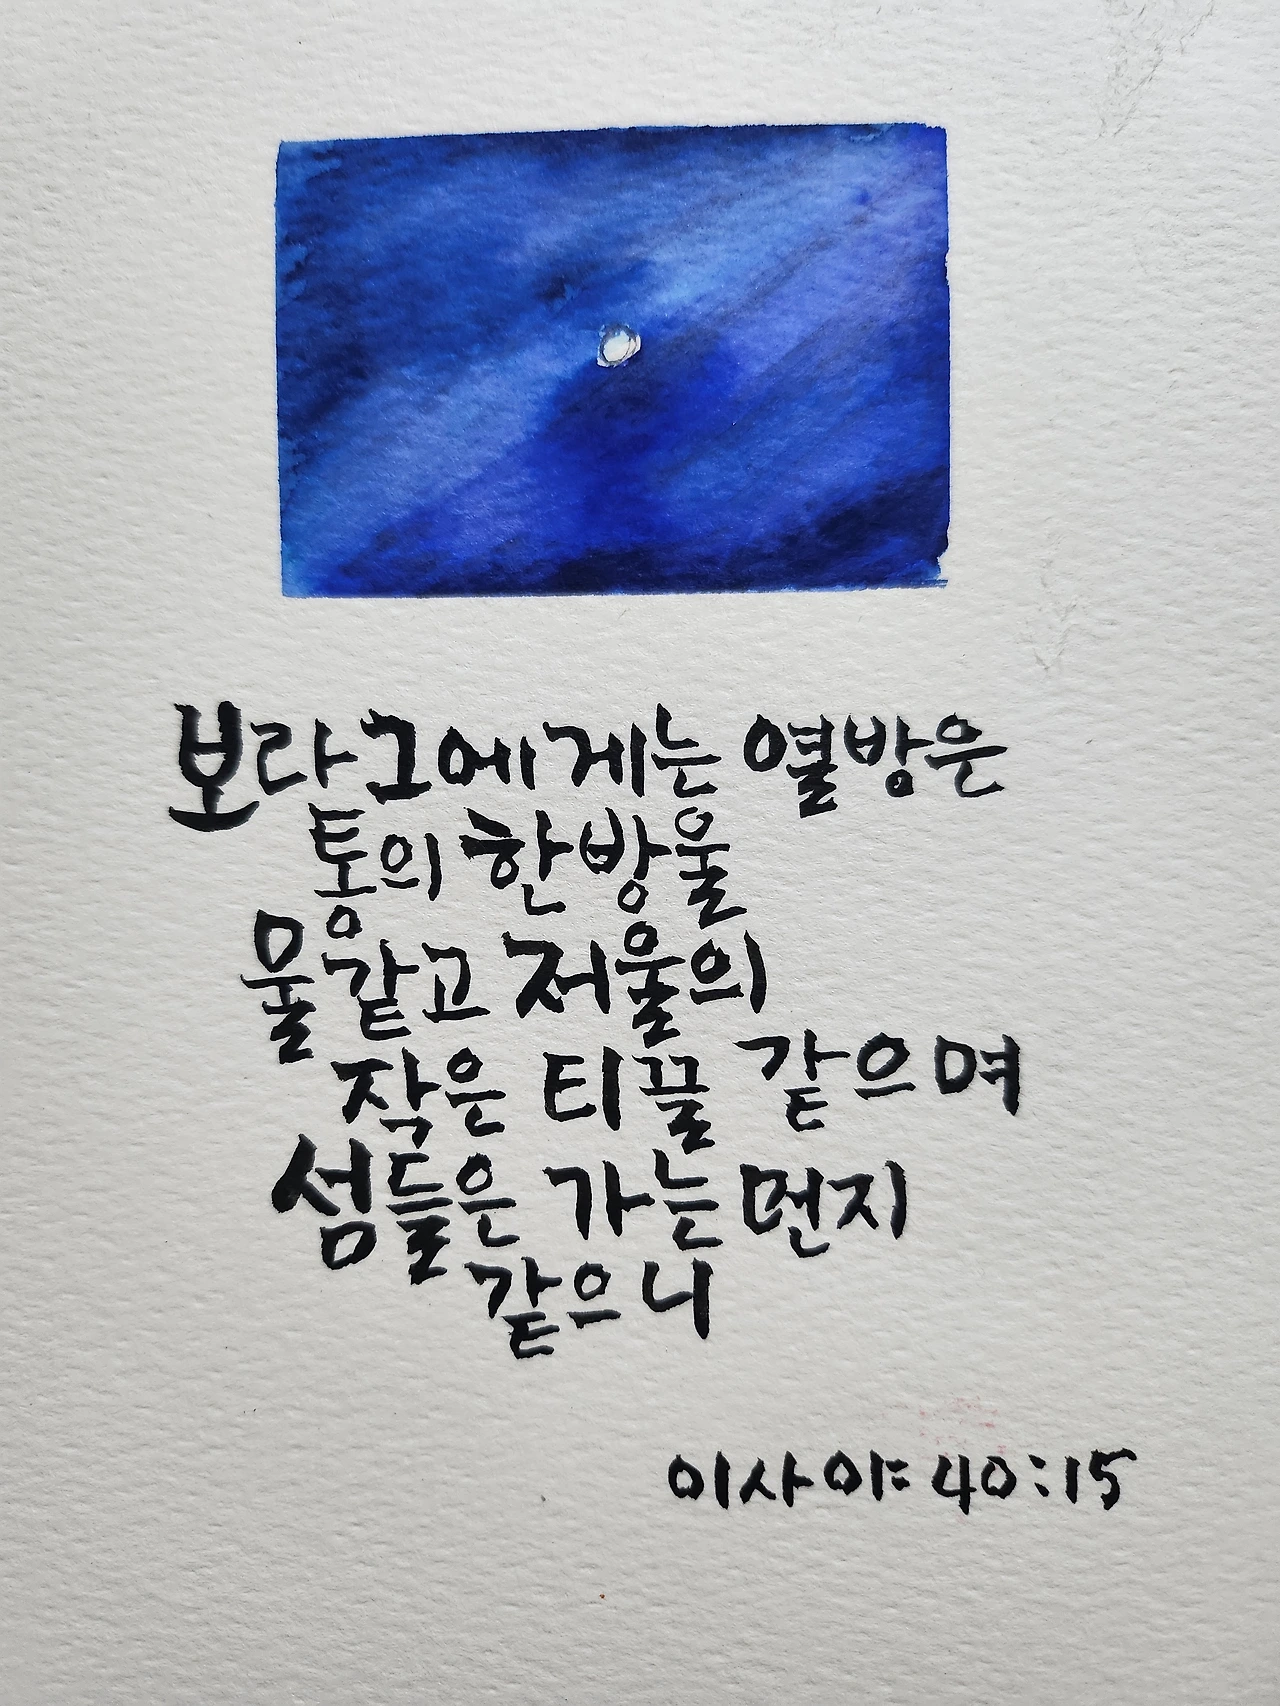 보라 그에게는 열방은
통의 한방울
물같고 저울의
작은 티끌 같으며
섬들은 가는 먼지
같으니
이사야 40:15